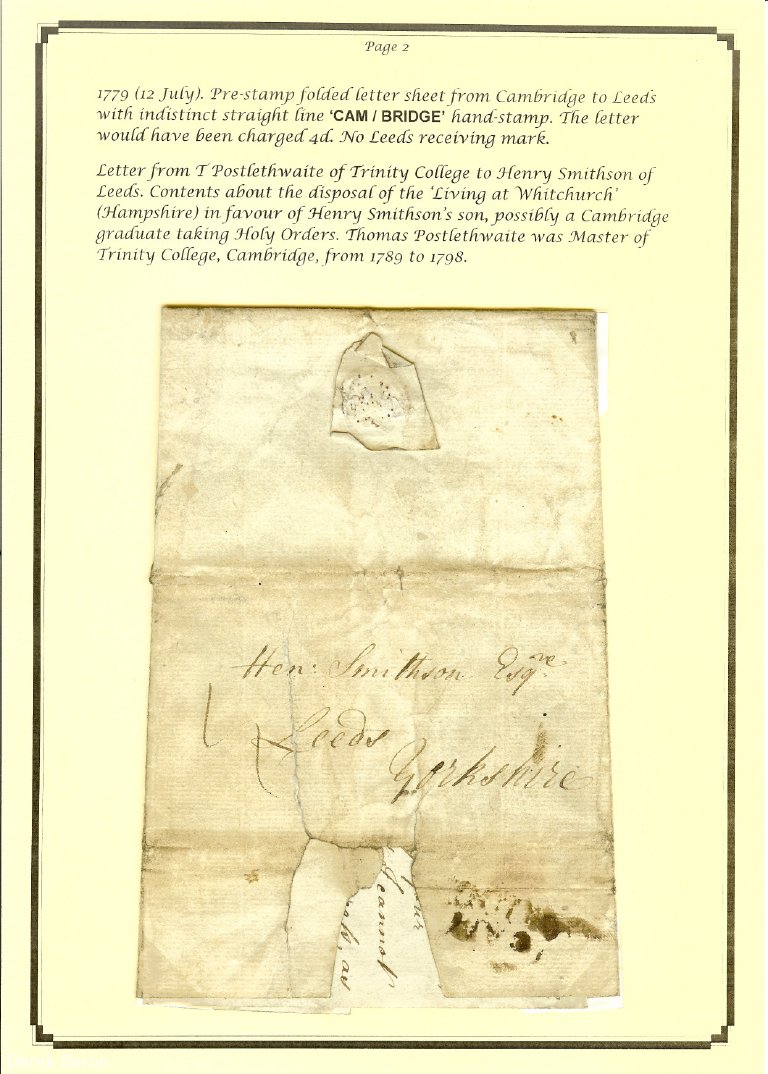 Page 2
1779 (12 July). Pre-stamp folded letter sheet from Cambridge to Leeds
with indistinct straight line ‘CAM / BRIDGE’ hand-stamp. The letter
would have been charged 4d. No Leeds receiving mark.
Letter from T Postlethwaite of Trinity College to Henry Smithson of
Leeds. Contents about the disposal of the ‘Living at Whitchurch’
(Hampshire) in favour of Henry Smithson's son, possibly a Cambridge
graduate taking Holy Orders. Thomas Postlethwaite was Master of
Trinity College, Cambridge, from 1789 to 1798.
Hen: Smithson Esqre
Leeds
Yorkshire
cannot